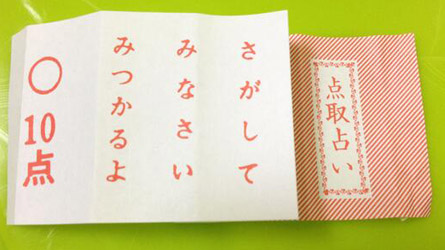 点取占い
さがして
みなさい
みつかるよ
○
10点